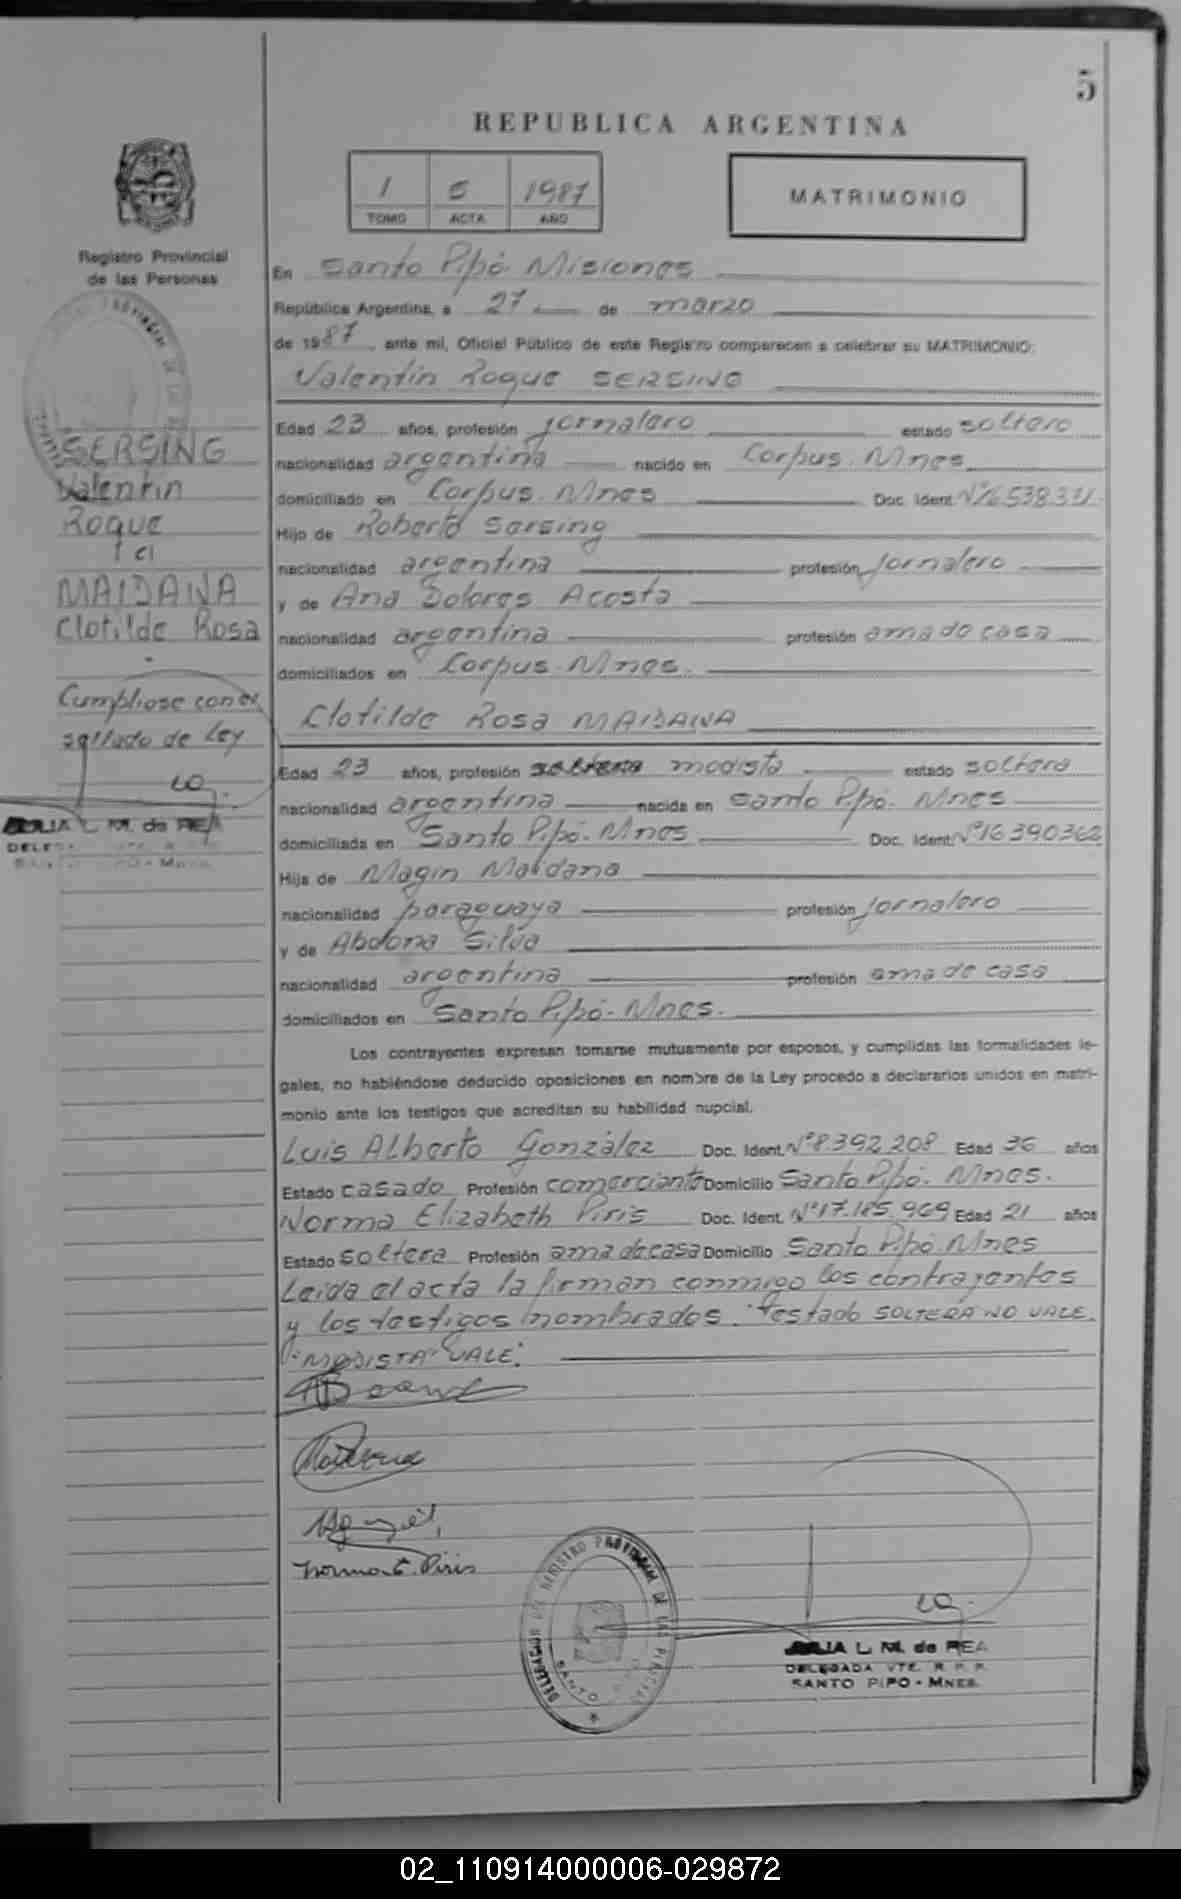 5
REPUBLICA ARGENTINA
1 5 1987
TOMO ACTA AÑO
MATRIMONIO
Registro Provincial
de las Personas
SERSING
Valentin
Roque
MAIDANA
Clotilde Rosa
Cumpliose con el
sellado de Ley
JULIA L. M. de REA
En Santo Pipó Misiones
República Argentina, a 27 de marzo
de 1987, ante mi, Oficial Público de este Registro comparecen a celebrar su MATRIMONIO:
Valentin Roque SERSING
Edad 23 años, profesión jornalero estado soltero
nacionalidad argentina nacido en Corpus. Mnes
domiciliado en Corpus. Mnes Doc. Ident. Nº 16.538.331
Hijo de Roberto Sersing
nacionalidad argentina profesión jornalero
y de Ana Dolores Acosta
nacionalidad argentina profesión ama de casa
domiciliados en Corpus. Mnes.
Clotilde Rosa MAIDANA
Edad 23 años, profesión soltera modista estado soltera
nacionalidad argentina nacida en Santo Pipó. Mnes
domiciliada en Santo Pipó. Mnes Doc. Ident. Nº 16390362
Hija de Magin Maidana
nacionalidad paraguaya profesión jornalero
y de Abdona Silva
nacionalidad argentina profesión ama de casa
domiciliados en Santo Pipó. Mnes.
Los contrayentes expresan tomarse mutuamente por esposos, y cumplidas las formalidades le-
gales, no habiéndose deducido oposiciones en nombre de la Ley procedo a declararlos unidos en matri-
monio ante los testigos que acreditan su habilidad nupcial.
Luis Alberto González Doc. Ident. Nº 8.392.208 Edad 36 años
Estado casado Profesión comerciante Domicilio Santo Pipó. Mnes.
Norma Elizabeth Piris Doc. Ident. Nº 17.185.969 Edad 21 años
Estado soltera Profesión ama de casa Domicilio Santo Pipó. Mnes
Leida el acta la firman conmigo los contrayentes
y los testigos nombrados. Testado SOLTERA NO VALE.
"MODISTA" VALE.
Norma E. Piris
DELEGACION DEL REGISTRO PROVINCIAL DE LAS PERSONAS
SANTO
JULIA L. M. de REA
DELEGADA VTE. R. P. P.
SANTO PIPO - MNES.
02_110914000006-029872